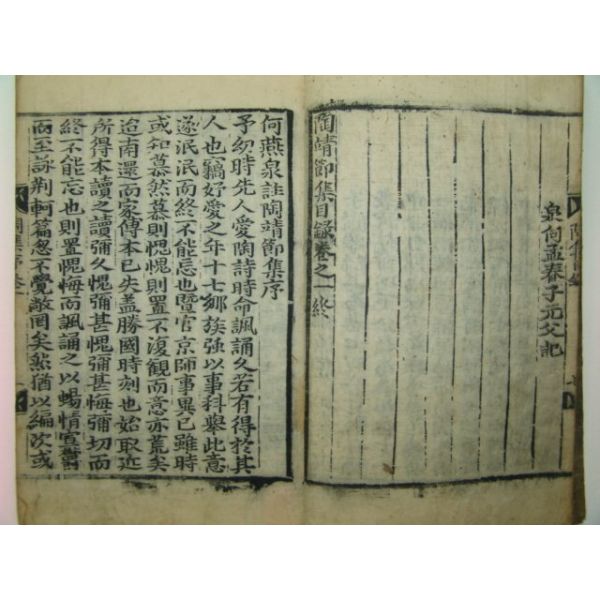 泉何孟春子元父記
陶靖節集目録卷之一終
何燕泉註陶靖節集序
予幼時先人愛陶詩時命諷誦久若有得於其
人也竊好愛之年十七鄉族強以事科舉此意
遂泯泯而終不能忘也曁官京師事異已雖時
或知慕然慕則愧愧則置不復観而意亦荒矣
迨南還而家傳本已失盖勝國時刻也始取近
所得本讀之讀彌久愧彌甚愧彌甚悔彌切而
終不能忘也則置愧悔而諷誦之以暢情宣鬱
而至詠荆軻篇忽不覺敞罔矣然猶以編次或